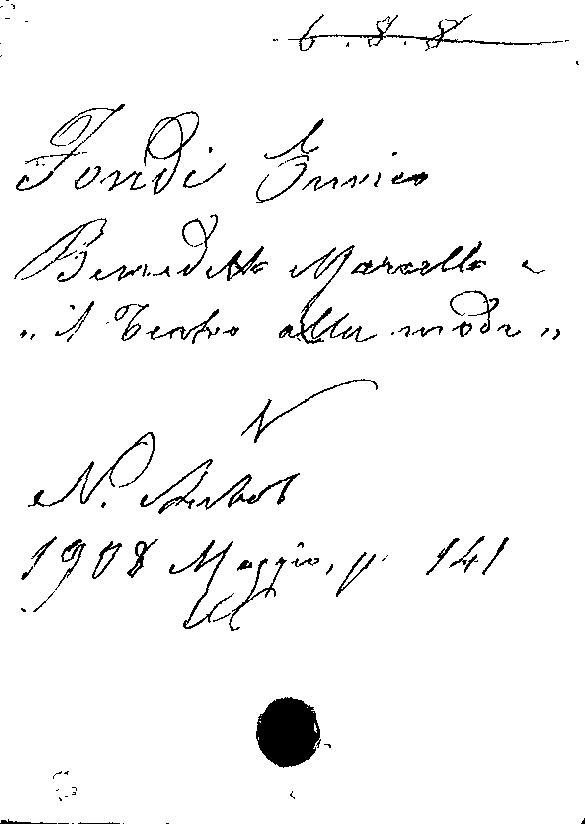 6.8.8
Fondi Enrico
Benedetto Marcello e
„il Teatro alla moda„
N.
1908 Maggio, p. 141